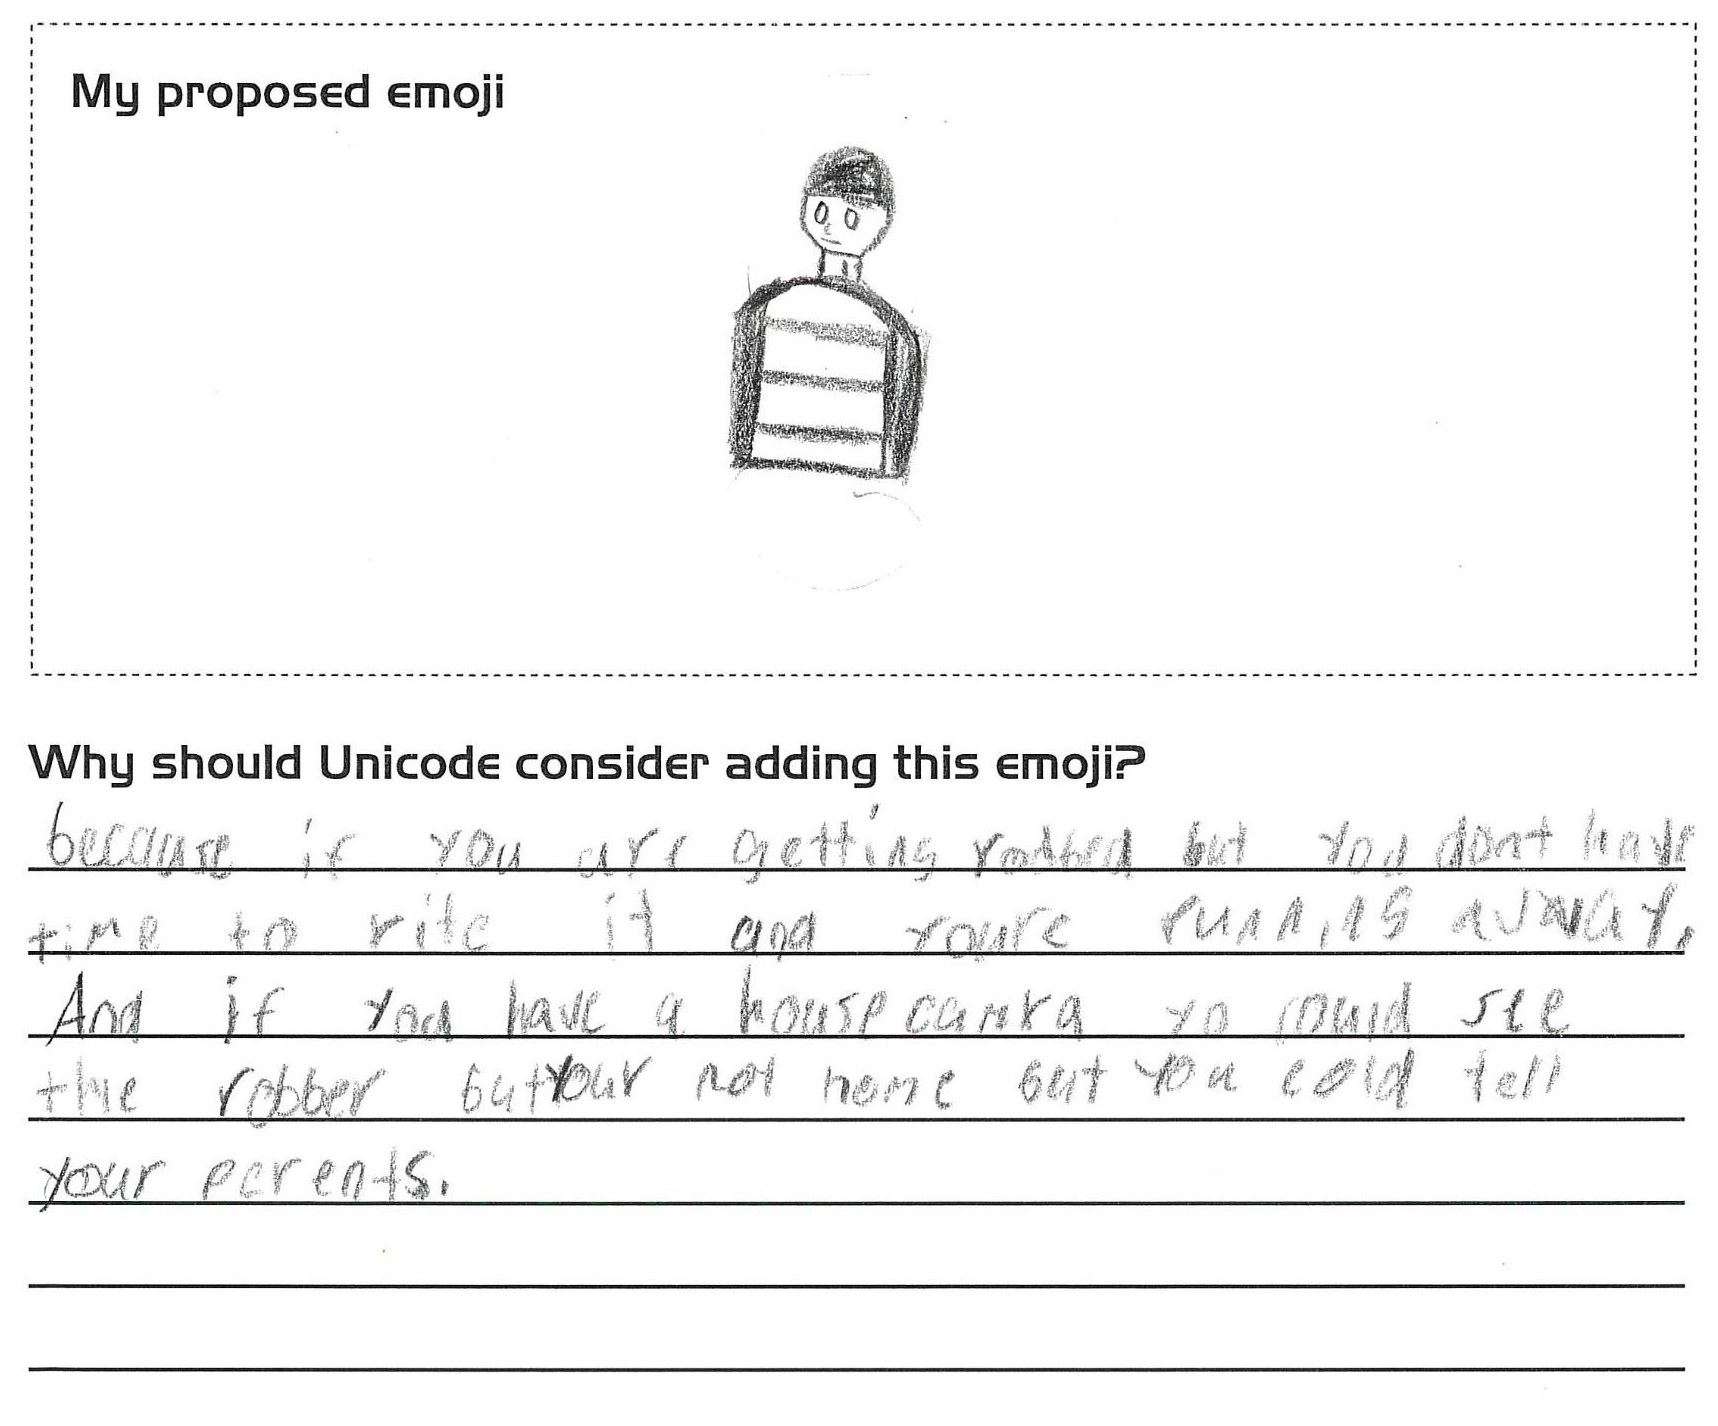 My proposed emoji
Why should Unicode consider adding this emoji?
because if you are getting robbed but you dont have
time to rite it and youre running away.
And if you have a house camra yo could see
the robber but your not home but you cold tell
your perents.